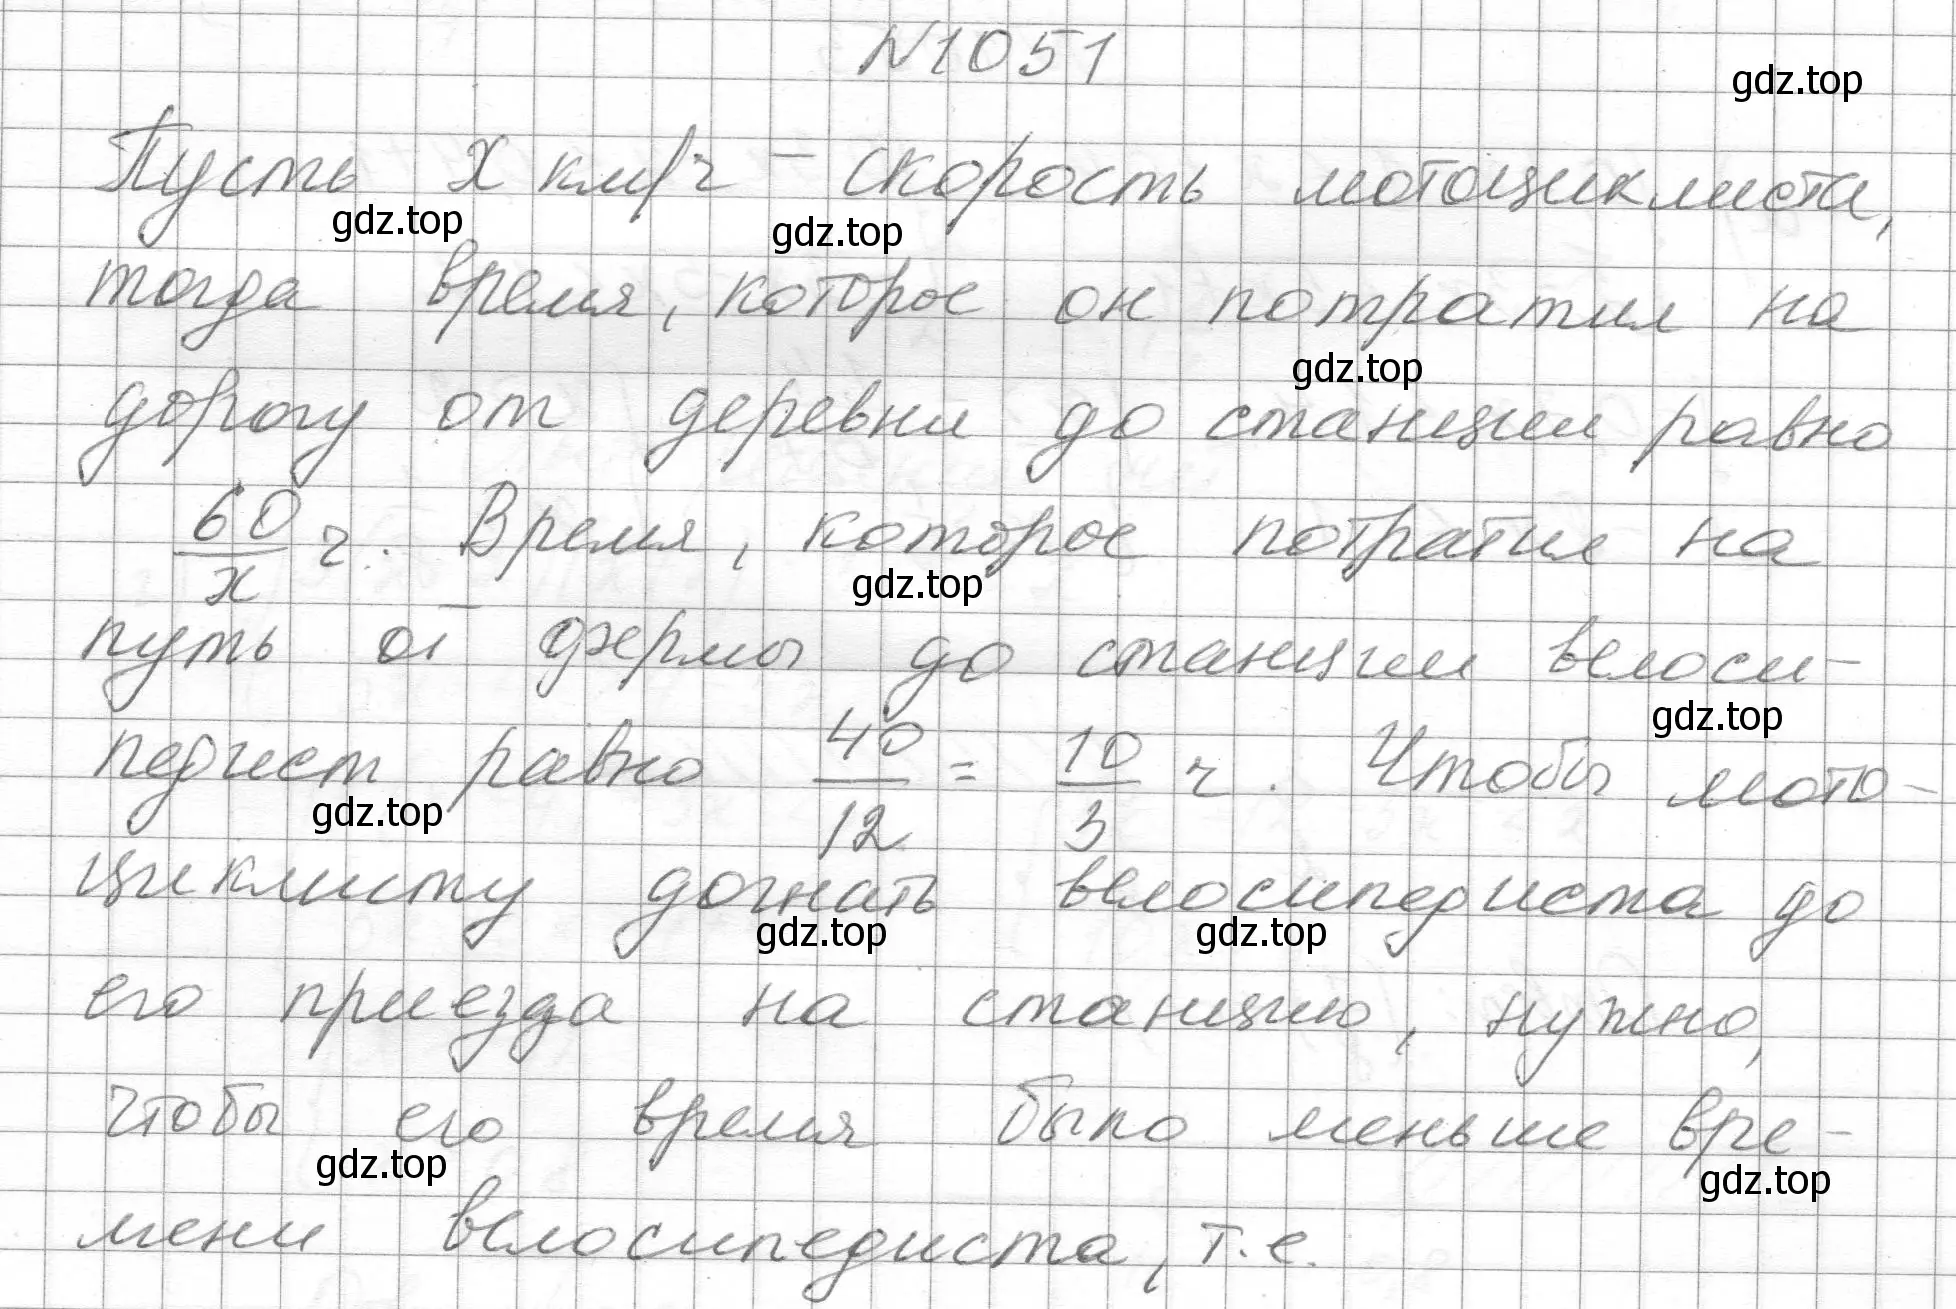 №1051
gdz.top
Пусть x км/ч – скорость мотоциклиста,
gdz.top gdz.top
тогда время, которое он потратил на
gdz.top
дорогу от деревни до станции равно
60/x ч. Время, которое потратил на
gdz.top
путь от фермы до станции велоси-
gdz.top
педист равно 40/12 = 10/3 ч. Чтобы мото-
gdz.top
циклисту догнать велосипедиста до
gdz.top gdz.top
его приезда на станцию, нужно,
чтобы его время было меньше вре-
gdz.top gdz.top
мени велосипедиста, т.е.